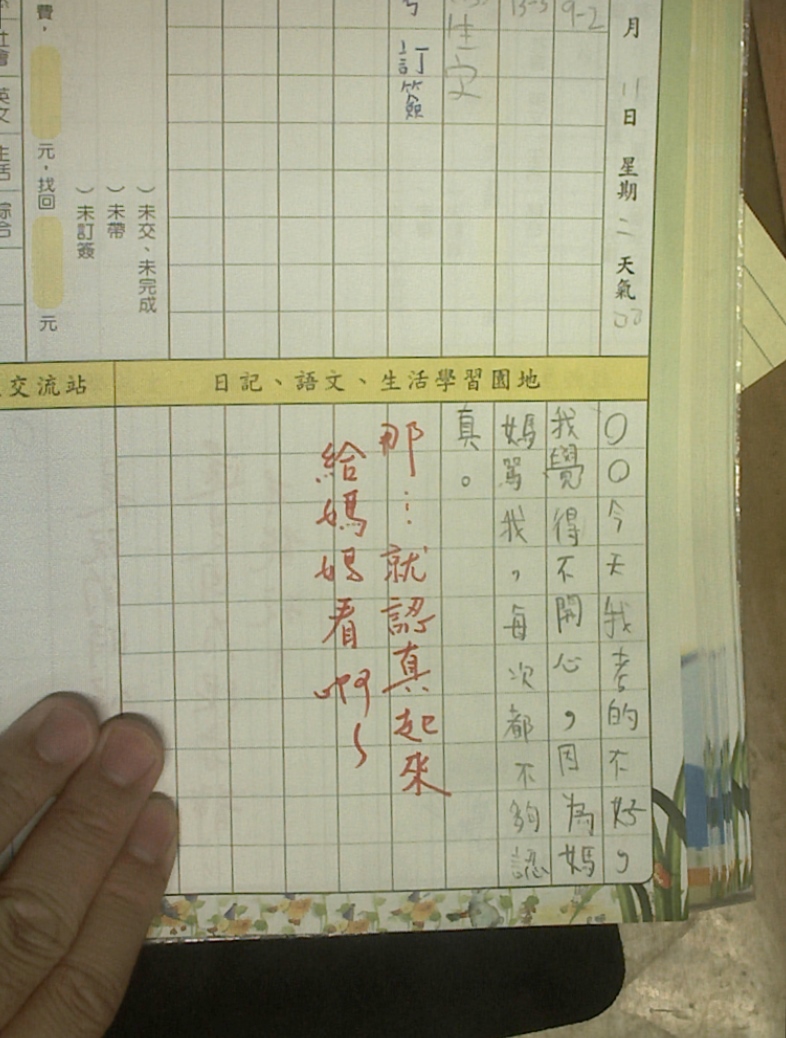 月 11日 星期二 天氣
9-2
13-3
生字
訂簽
）未交、未完成
）未帶
）未訂簽
費，
元，找回
元
社會
英文
生活
綜合
日記、語文、生活學習園地
交流站
○○今天我考的不好，
我覺得不開心，因為媽
媽罵我，每次都不夠認
真。
那…就認真起來
給媽媽看啊～